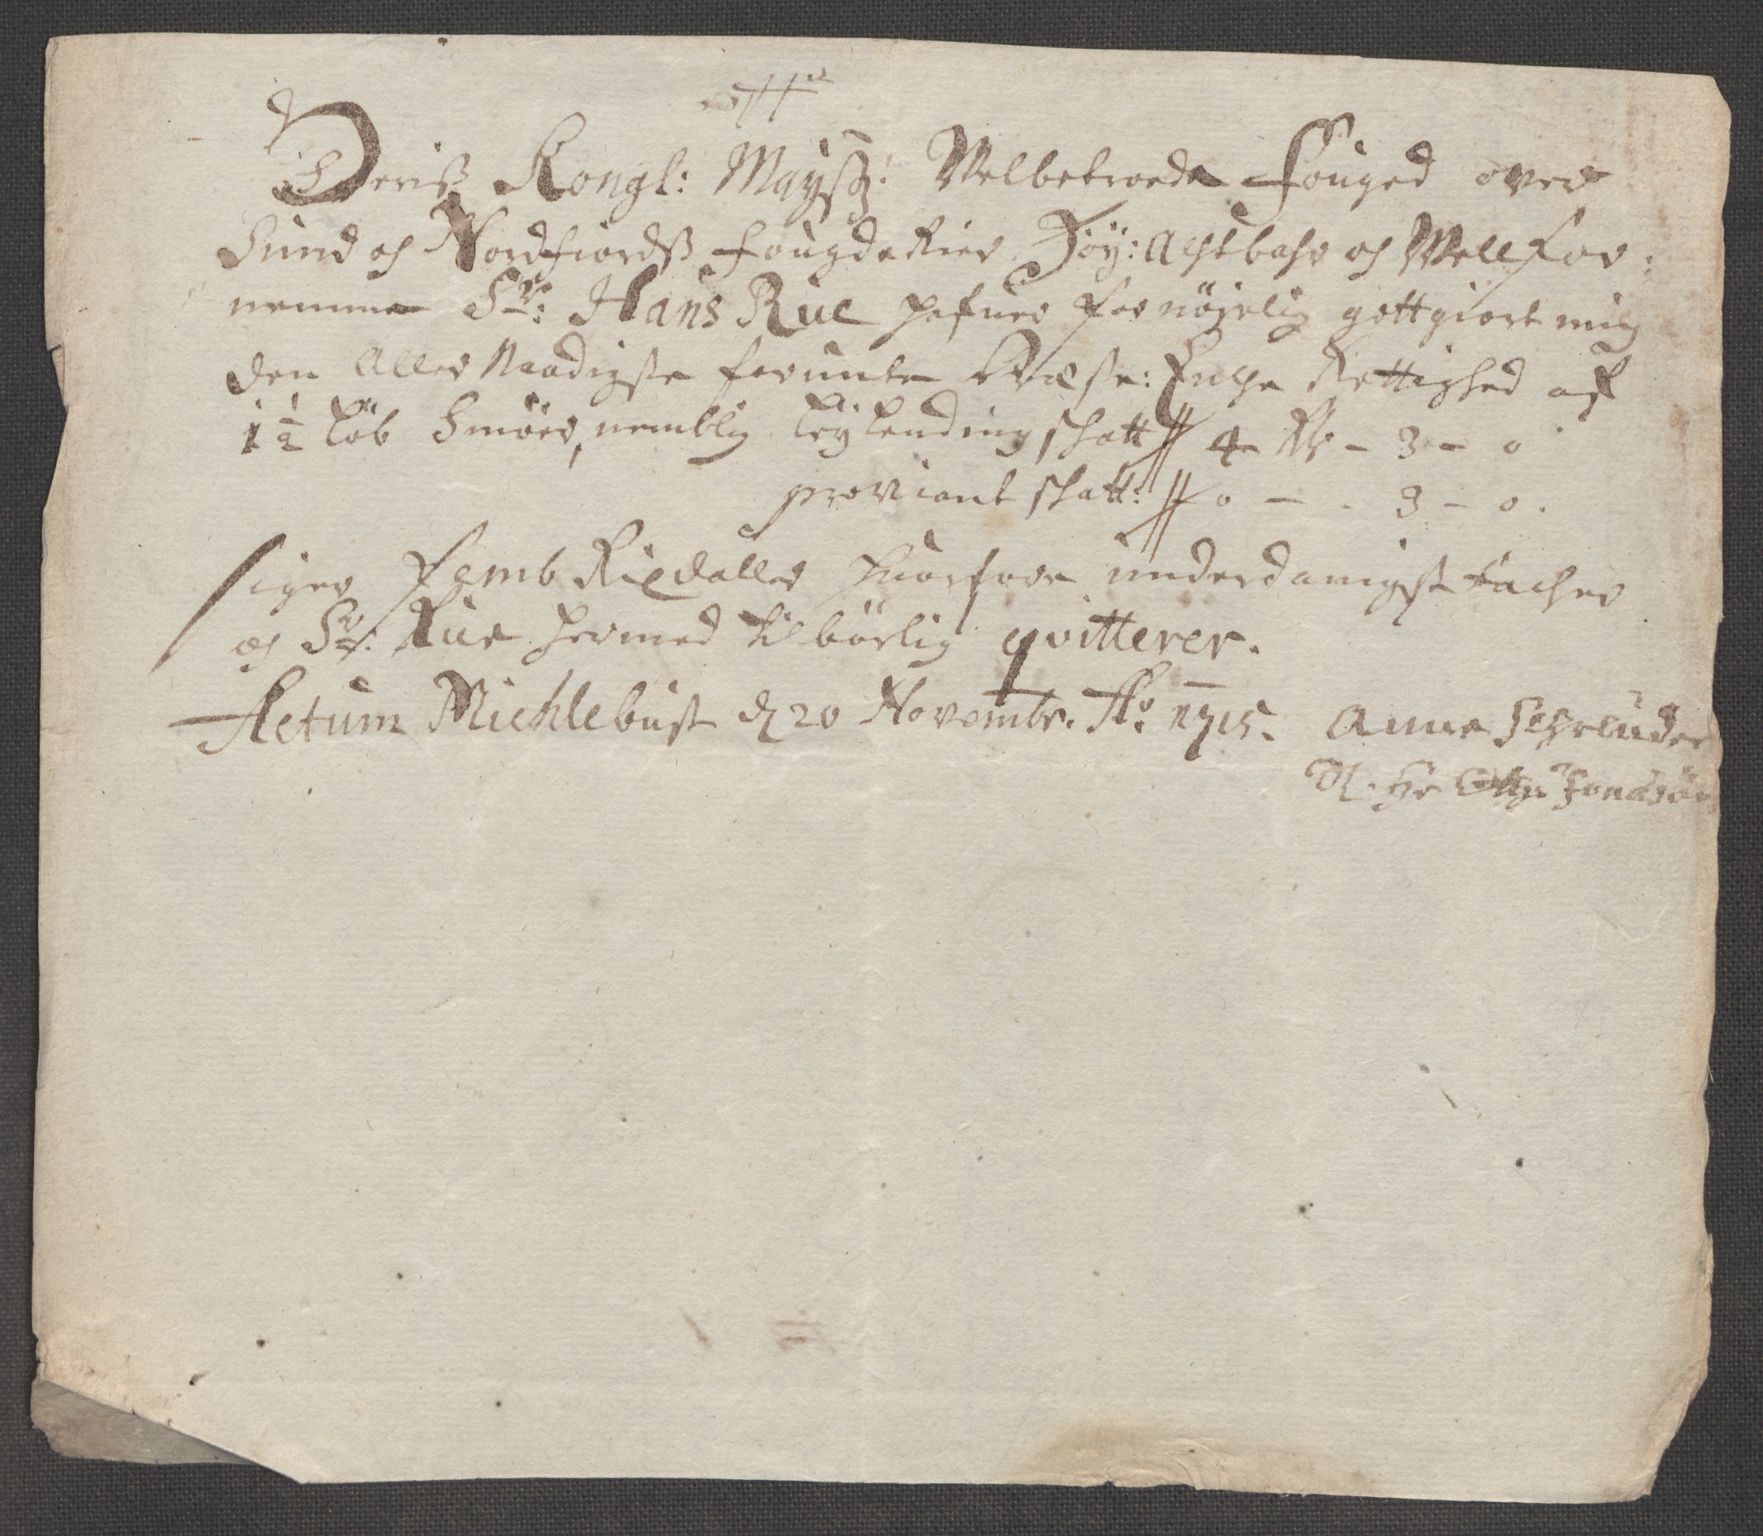 Deriß Kongl: Mayß: Velbetroede Fouged over
Sund og Nordfiordß fougderier Höy: Achtbahr og Vellfor:
nemme Sr: Hans Rue hafuer fornöyelig gottgiort mig
den Aller Naadigste forunte Præste: Enche Rettighed af
1 ½ löb Smöer, nemblig leylending schatt 4 Rdr - 3 - 0
proviant schatt: 0 - - 3 - 0.
siger femb Rixdaller huorfore underdanigst tacher
og Sr: Rue hermed tilbörlig qvitterer.
Actum Michlebust d 20 Novembr. Ao 1715. Anne Schreuder
Sl. Hr Otthe Jonasön